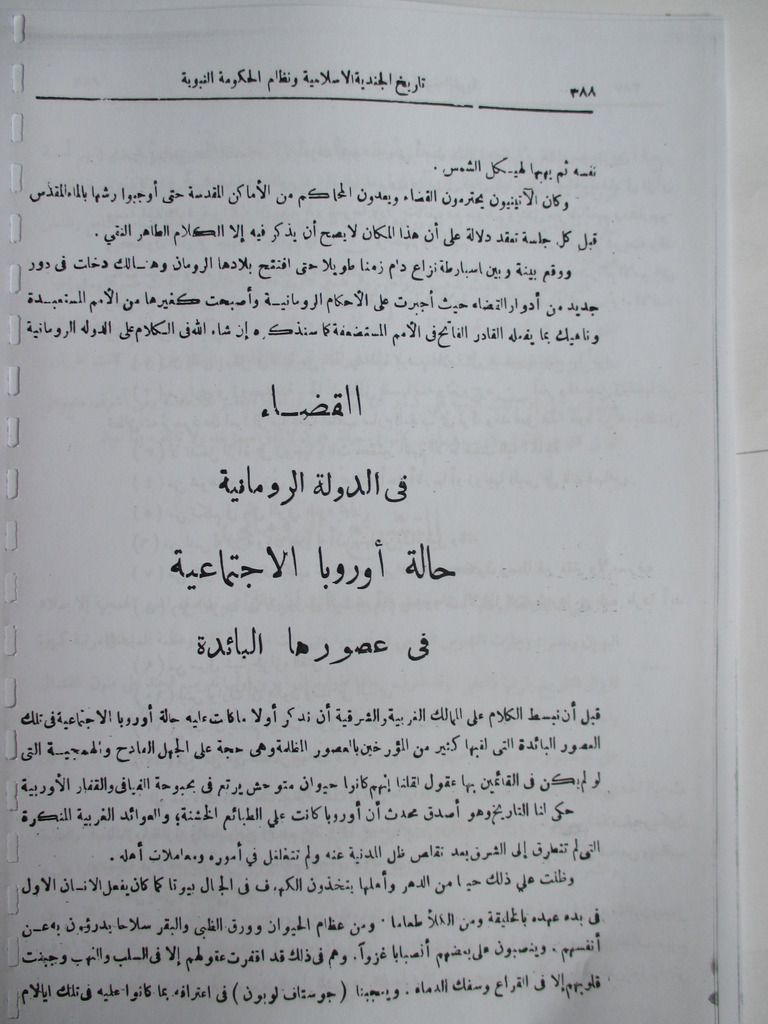 ٣٨٨
تاريخ الجندية الاسلامية ونظام الحكومة النبوية
نفسه ثم يهبها لهيكل الشمس .
وكان الآتينيون يحترمون القضاء ويعدون المحاكم من الأماكن المقدسة حتى أوجبوا رشها بالماء المقدس
قبل كل جلسة تعقد دلالة على أن هذا المكان لا يصح أن يذكر فيه إلا الكلام الطاهر النقي .
ووقع بينه وبين اسبارطة نزاع دام زمنا طويلا حتى افتتح بلادها الرومان وهنالك دخلت فى دور
جديد من أدوار القضاء حيث أجبرت على الأحكام الرومانية وأصبحت كغيرها من الأمم المستعبدة
وناهيك بما يفعله القادر الفاتح فى الأمم المستضعفة كما سنذكره إن شاء الله فى الكلام على الدولة الرومانية
القضاء
فى الدولة الرومانية
حالة أوروبا الاجتماعية
فى عصورها البائدة
قبل أن نبسط الكلام على الممالك الغربية والشرقية أن نذكر أولا ما كانت عليه حالة أوروبا الاجتماعية فى تلك
العصور البائدة التى لقبها كثير من المؤرخين بالعصور المظلمة وهى حجة على الجهل الفادح والهمجية التى
لو لم يكن فى القائمين بها عقول لقلنا إنهم كانوا حيوان متوحش يرتع فى بحبوحة الفيافى والقفار الأوربية
حكى لنا التاريخ وهو أصدق محدث أن أوروبا كانت علي الطبائع الخشنة، والعوائد الغربية المنكرة
التى لم تتطرق إلى الشرق بعد تقلص ظل المدنية عنه ولم تتغلغل في أموره ومعاملات أهله .
وظلت علي ذلك حينا من الدهر وأهلها يتخذون الكهوف فى الجبال بيوتا كما كان يفعل الانسان الاول
فى بدء عهده بالخليقة ومن الكلأ طعاما . ومن عظام الحيوان وورق الظبى والبقر سلاحا يدرؤون به عن
أنفسهم . وينصبون على بعضهم أنصبابا غزواً . وهم فى ذلك قد اقفرت عقولهم إلا فى السلب والنهب وجبنت
قلوبهم إلا فى القراع وسفك الدماء . ويعجبنا ( جوستاف لوبون ) فى اعترافه بما كانوا عليه فى تلك الايام